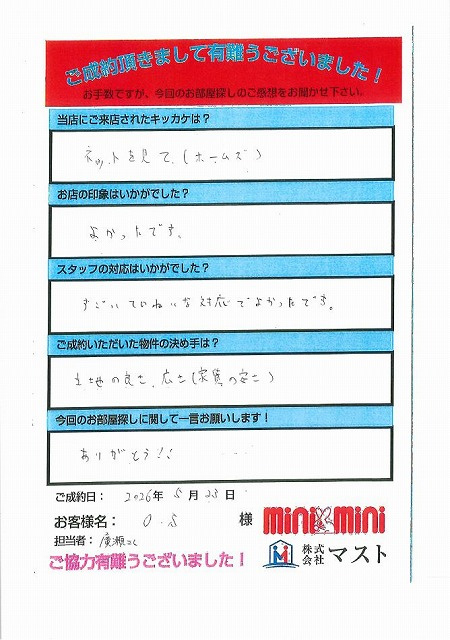 ご成約頂きまして有難うございました!
お手数ですが、今回のお部屋探しのご感想をお聞かせ下さい。
当店にご来店されたキッカケは?
ネットを見て、(ホームズ)
お店の印象はいかがでした?
よかったです。
スタッフの対応はいかがでした?
すごいていねいな対応でよかったです。
ご成約いただいた物件の決め手は?
土地の良さ、広さ(家賃の安さ)
今回のお部屋探しに関して一言お願いします!
ありがとう!!
ご成約日: 2026年 5月 23日
お客様名: O.S 様
担当者: 廣瀬
ご協力有難うございました!
mini mini
株式会社 マスト